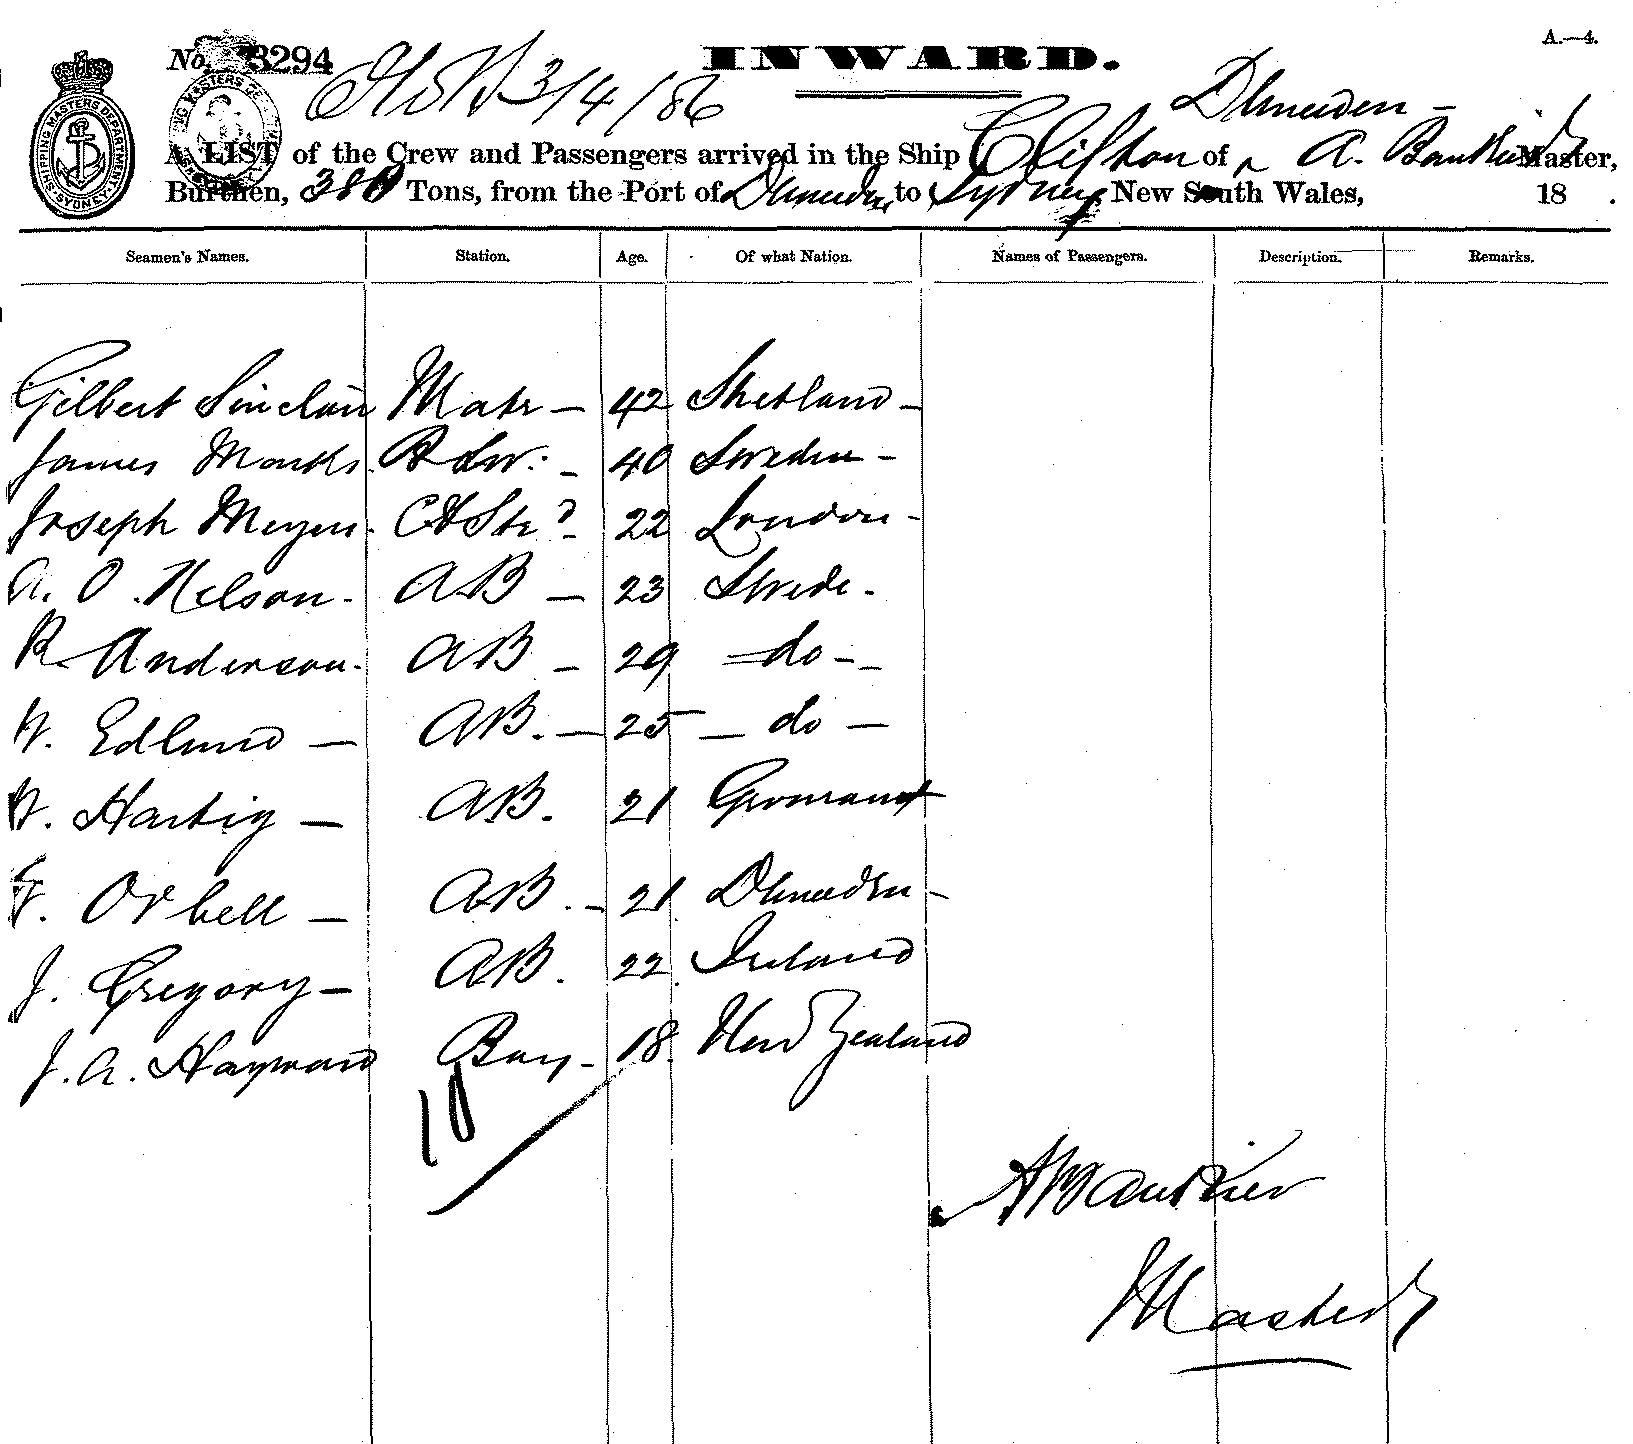 A.—4.
No. 3294 INWARD.
3/4/86 Dunedin -
A LIST of the Crew and Passengers arrived in the Ship Clifton of A. Bankier Master,
Burthen, 380 Tons, from the Port of Dunedin to Sydney New South Wales, 18 .
SHIPPING MASTERS DEPARTMENT SYDNEY
Seamen's Names. Station. Age. Of what Nation. Names of Passengers. Description. Remarks.
Gilbert Sinclair Mate — 42 Shetland -
James Monks. - 40 Sweden -
Joseph Meyers. - 22 London -
A. O. Nelson. AB — 23 Swede.
R. Anderson. AB - 29 = do - -
W. Edlund — AB. — 25 — do —
W. Hartig — AB. 21 Germany
Orbell — AB. - 21 Dunedin -
J. Gregory — AB. 22 Ireland
J. A. Hayward Boy - 18. New Zealand
10
A Bankier
Master